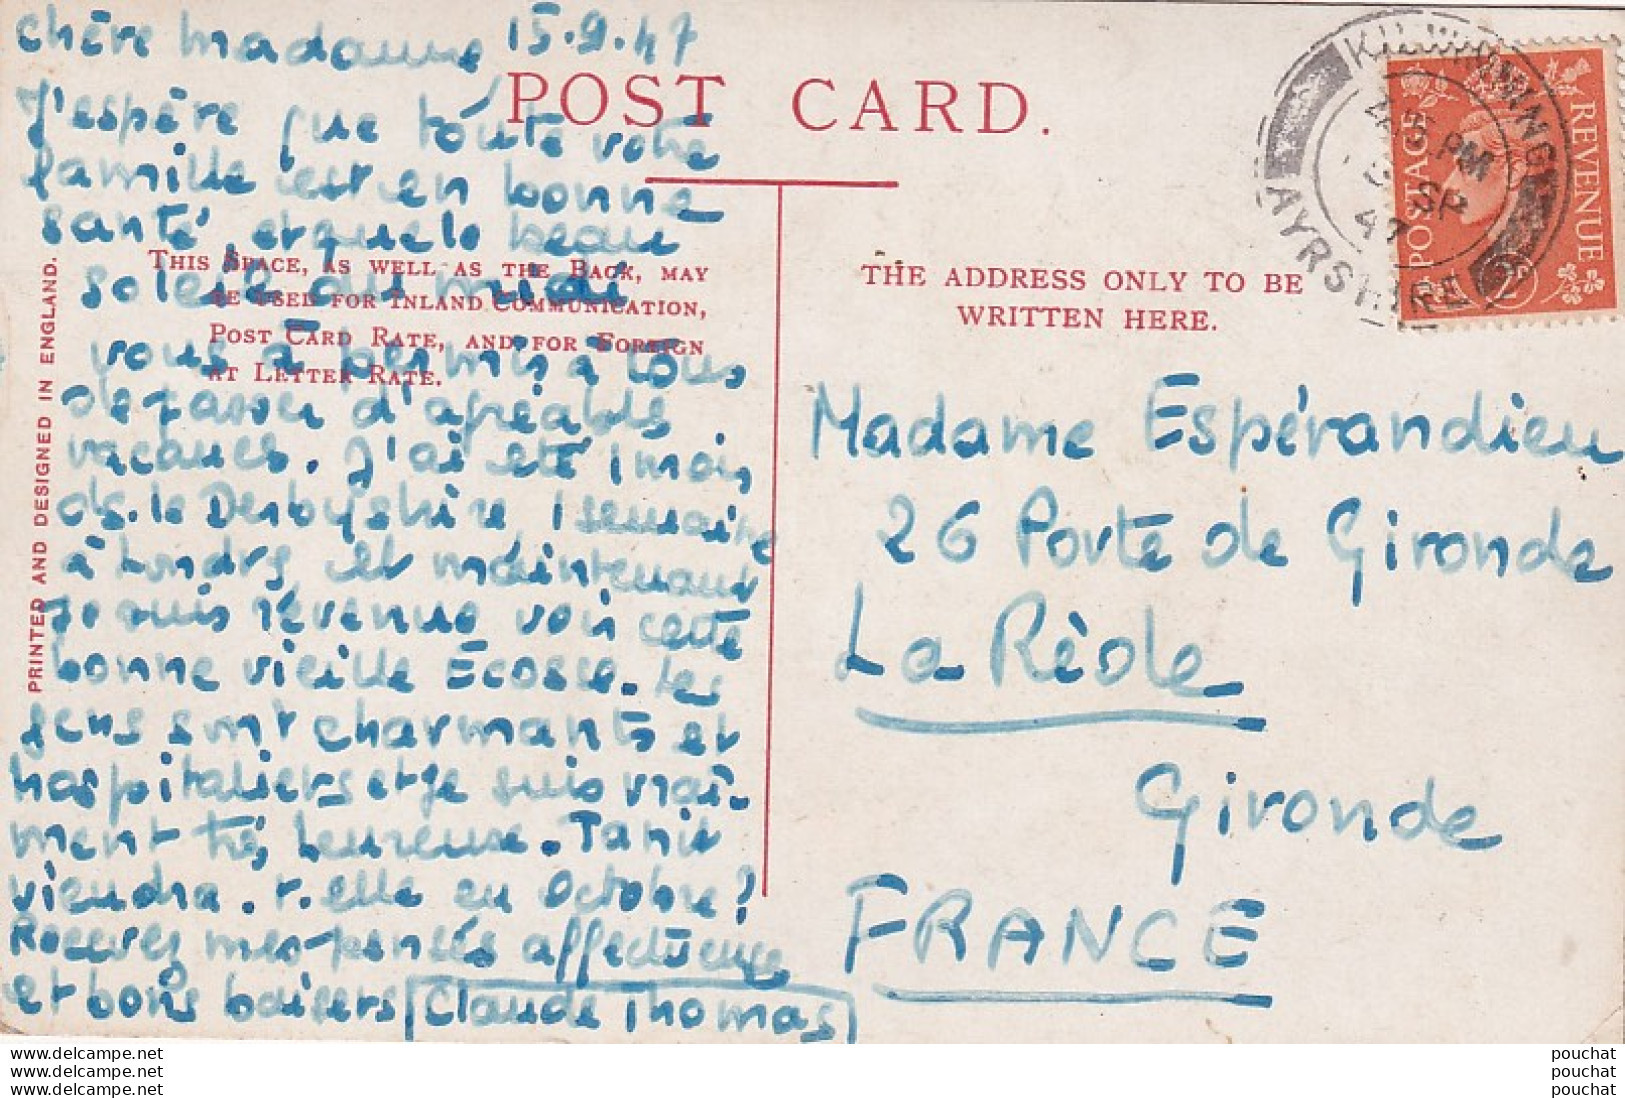 chère madame 15.9.47
J'espère que toute votre
famille est en bonne
santé et que le beau
soleil du midi
vous a permis à tous
de passer d'agréables
vacances. J'ai été 1 mois
ds. le Derbyshire 1 semaine
à Londres et maintenant
je suis revenue voir cette
bonne vieille Ecosse. Les
gens sont charmants et
hospitaliers et je suis vrai-
ment très heureuse. Tanit
viendra-t-elle en Octobre?
Recevez mes pensées affectueuses
et bons baisers Claude Thomas
POST CARD.
THIS SPACE, AS WELL AS THE BACK, MAY
BE USED FOR INLAND COMMUNICATION,
POST CARD RATE, AND FOR FOREIGN
AT LETTER RATE.
PRINTED AND DESIGNED IN ENGLAND.
THE ADDRESS ONLY TO BE
WRITTEN HERE.
KILWINNING
PM
SP
47
AYRSHIRE
POSTAGE
REVENUE
2D
Madame Espérandieu
26 Porte de Gironde
La Rèole
Gironde
FRANCE
www.delcampe.net
www.delcampe.net
www.delcampe.net
pouchat
pouchat
pouchat